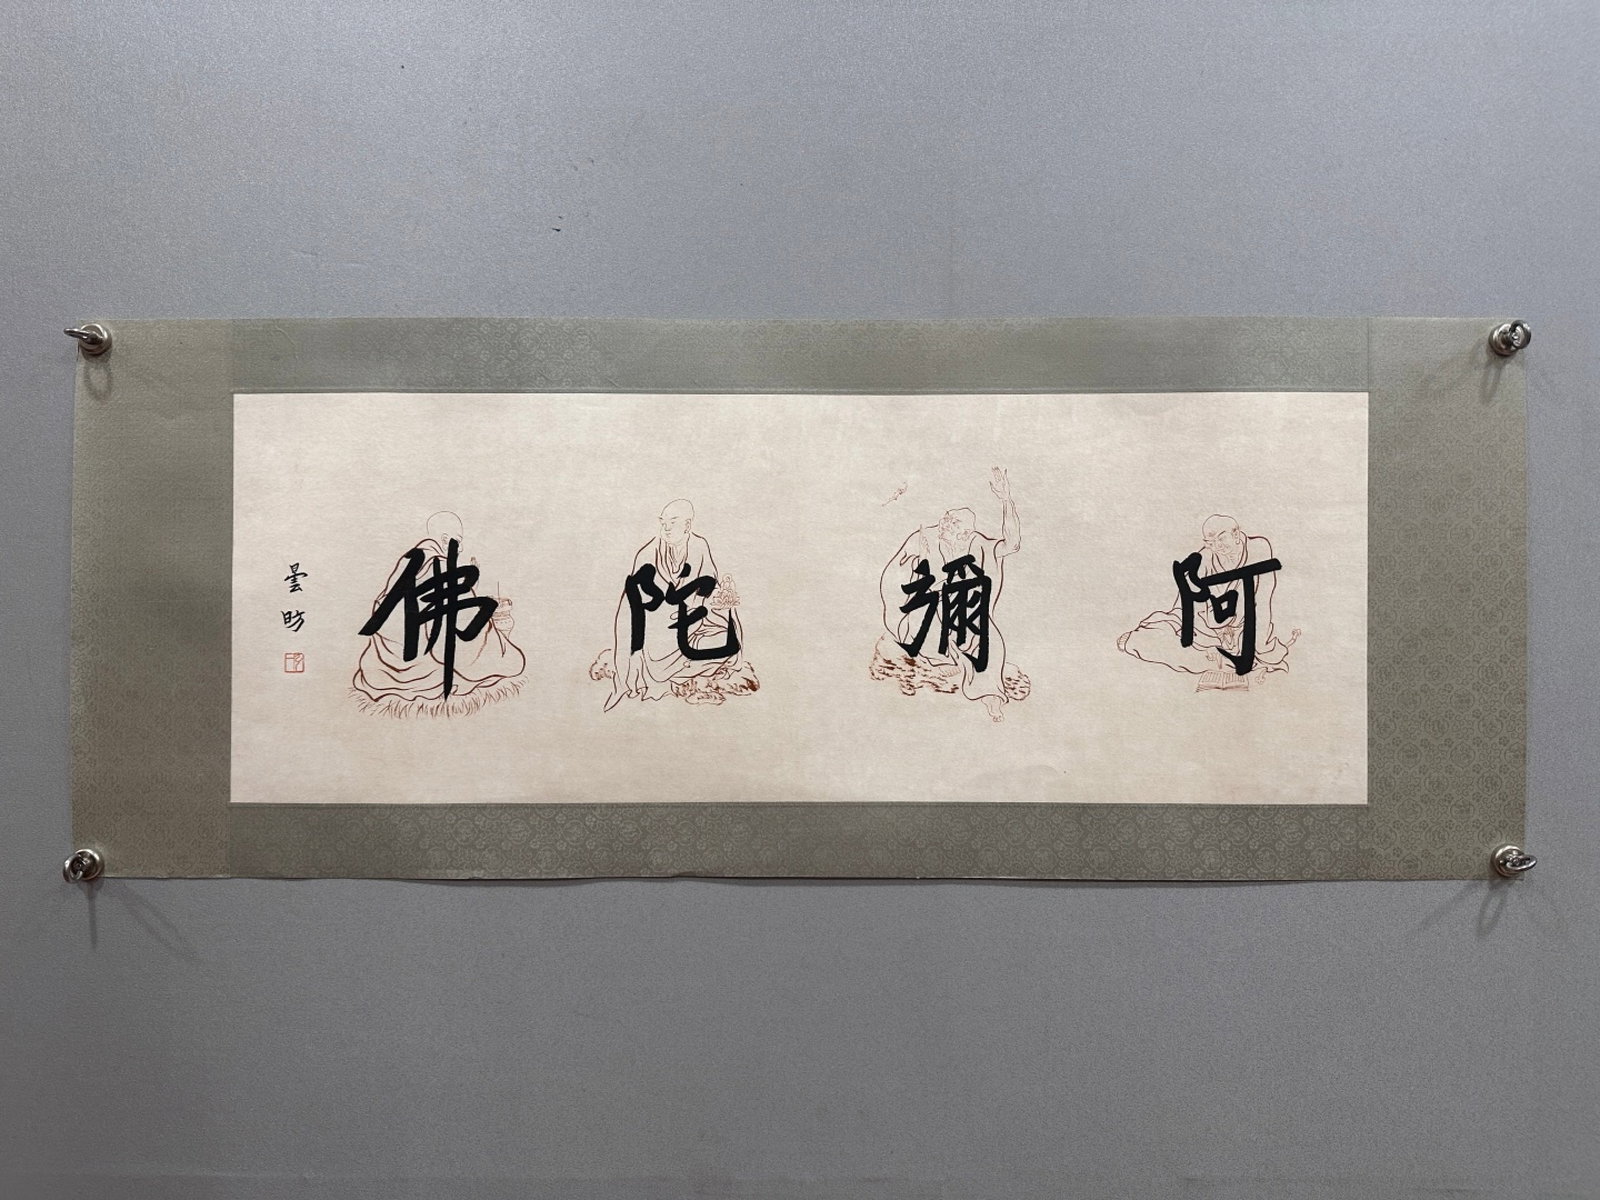 阿彌陀佛
曇昉